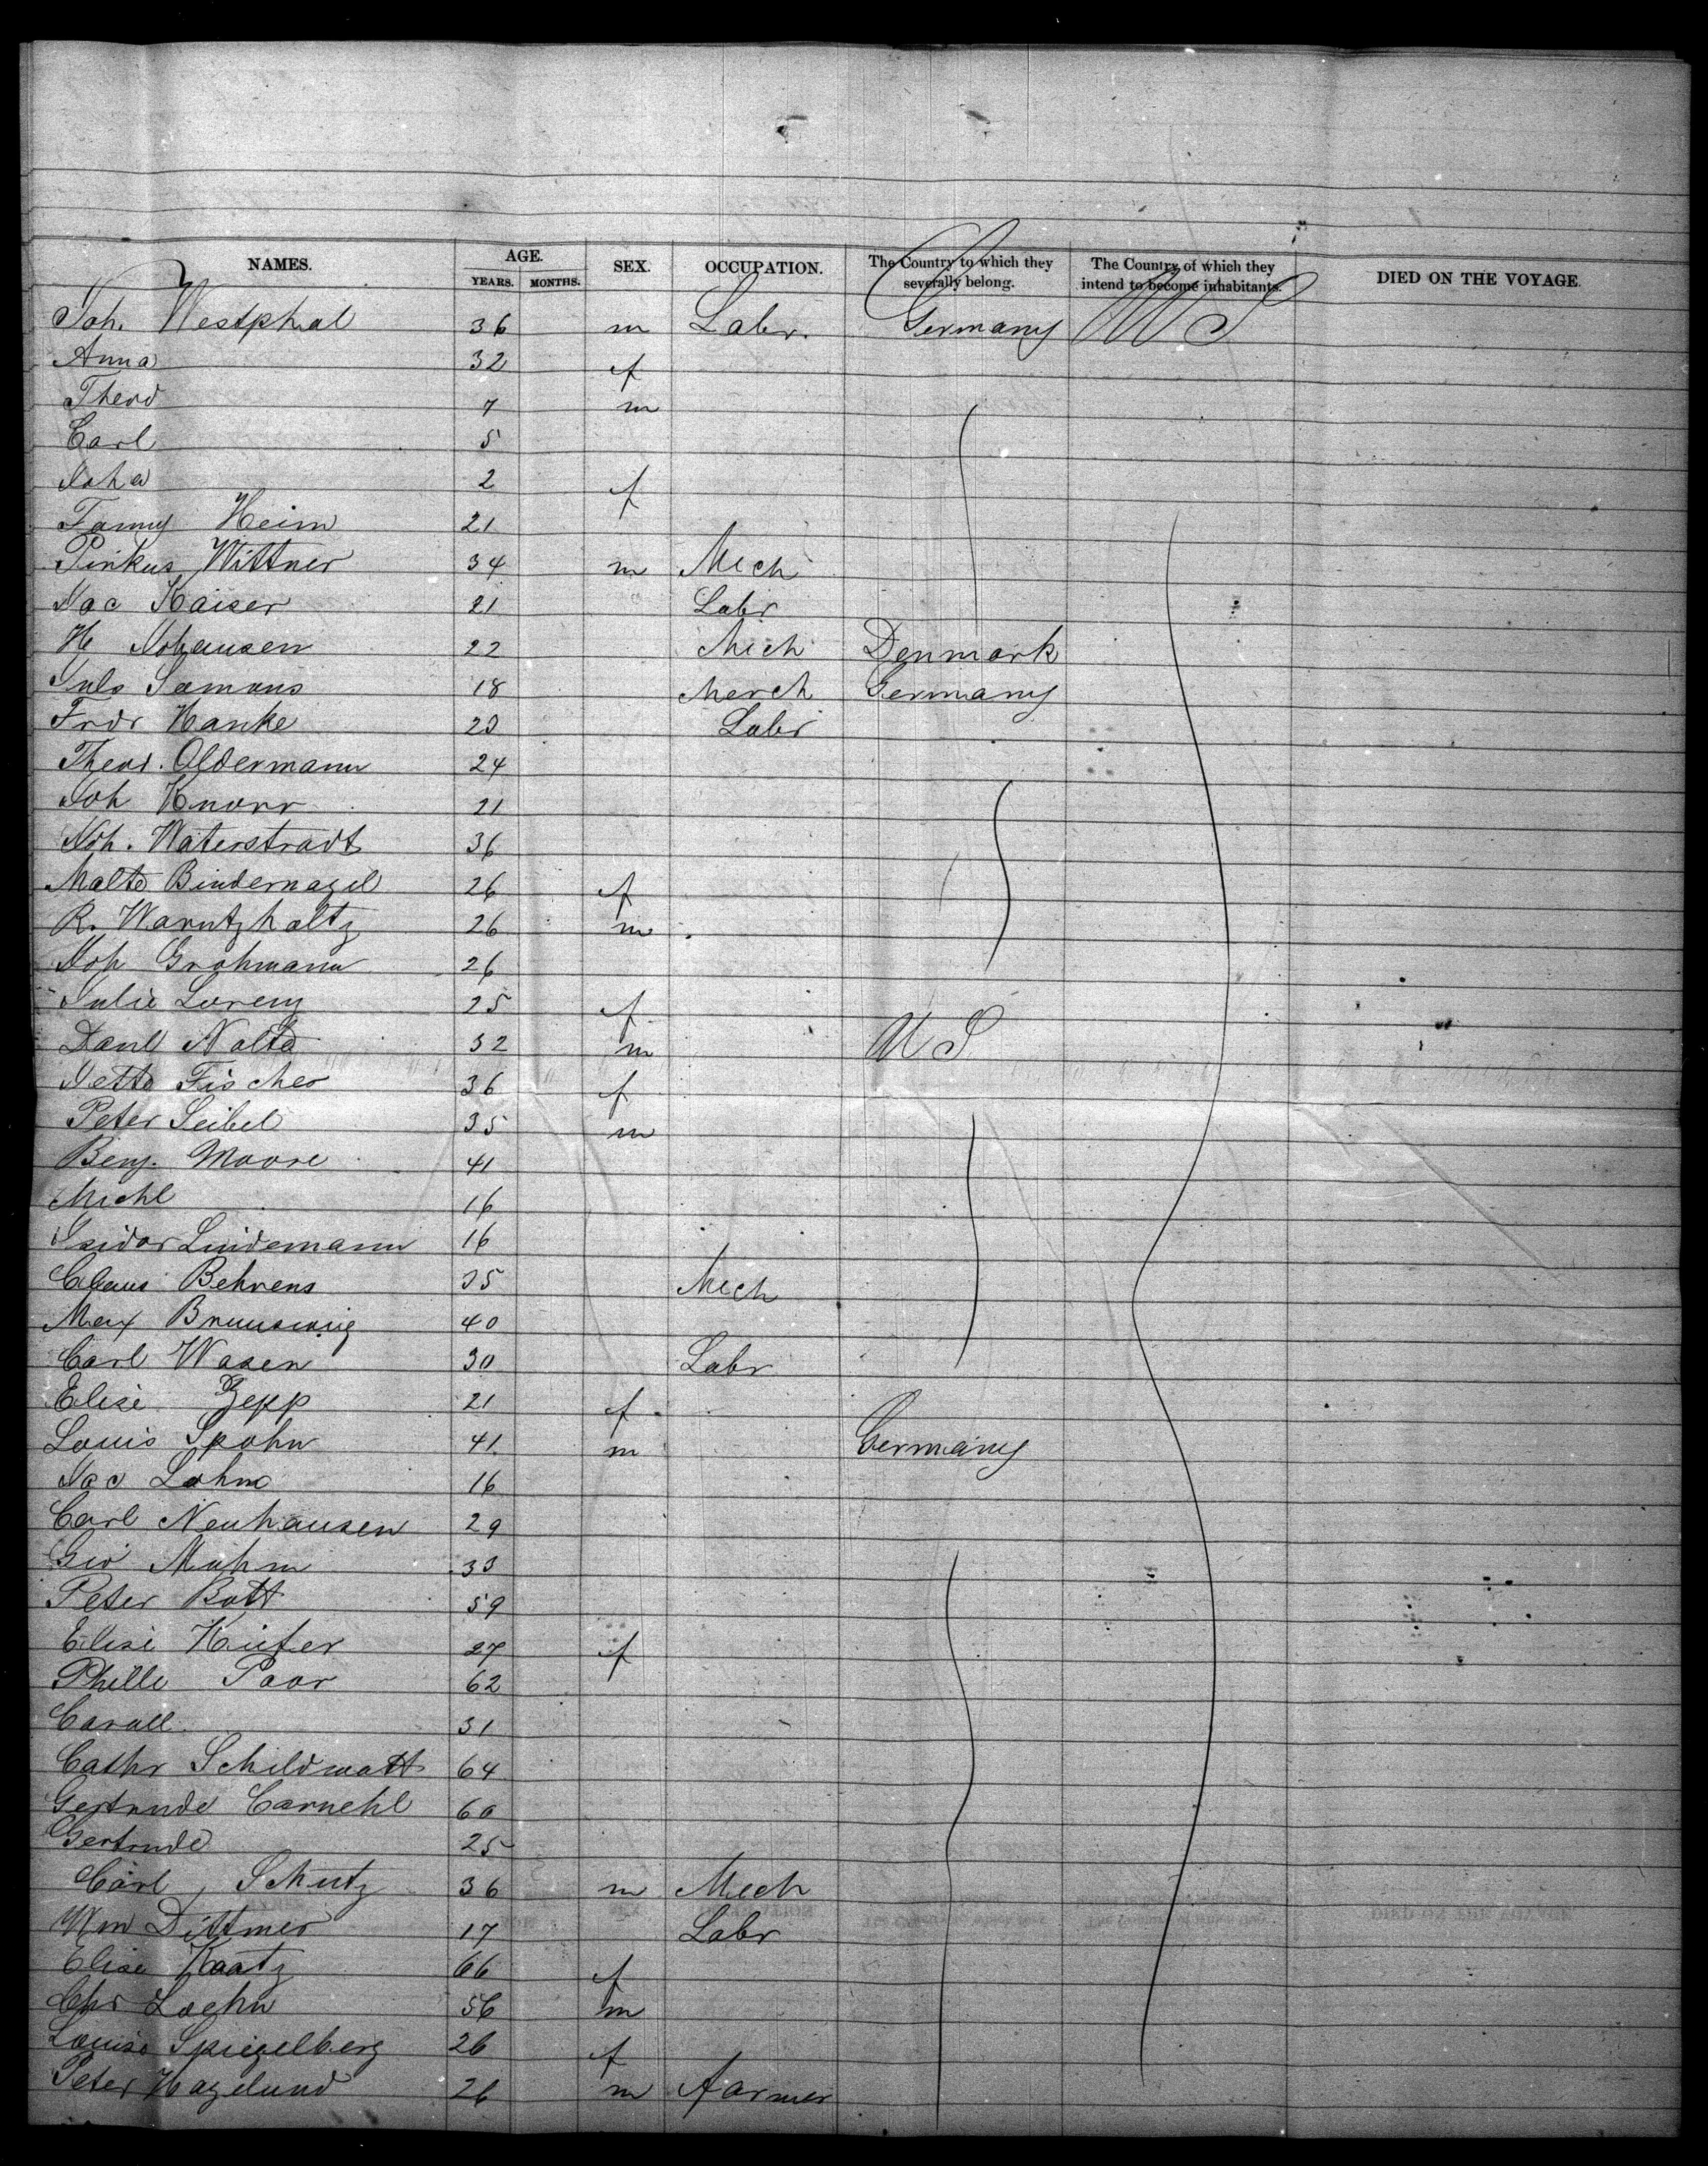 NAMES. AGE. YEARS. MONTHS. SEX. OCCUPATION. The Country to which they severally belong. The Country of which they intend to become inhabitants. DIED ON THE VOYAGE.
Joh. Westphal 36 m Labr. Germany U S
Anna 32 f
Theod 7 m
Carl 5
Joha 2 f
Fanny Heim 21
Pinkus Wittner 34 m Mech
Jac Kaiser 21 Labr
H Johansen 22 Mech Denmark
Juls Samons 18 Merch Germany
Frdr Hanke 20 Labr
Theod. Oldermann 24
Joh Knorr 21
Joh. Waterstradt 36
Malte Bindernagel 26 f
R. Warntzholtz 26 m
Jos Grohmann 26
Julie Lorenz 25 f
Danl Nolte 32 m U S
Jette Fischer 36 f
Peter Seibel 35 m
Benj. Moore 41
Michl 16
Isidor Lindemann 16
Claus Behrens 35 Mech
Max Brunswig 40
Carl Wasen 30 Labr
Elise Zepp 21 f
Louis Spohn 41 m Germany
Jac Lohm 16
Carl Neuhausen 29
Geo 33
Peter Bott 59
Elise Kiefer 27 f
Paar 62
31
Cathr Schildwatt 64
Gertrude Carnehl 60
Gertrude 25
Carl Schutz 36 m Mech
Wm Dittmer 17 Labr
Elise Kaatz 66 f
Chr Loehn 56 m
Louise Spiegelberg 26 f
Peter Hagelund 26 m Farmer